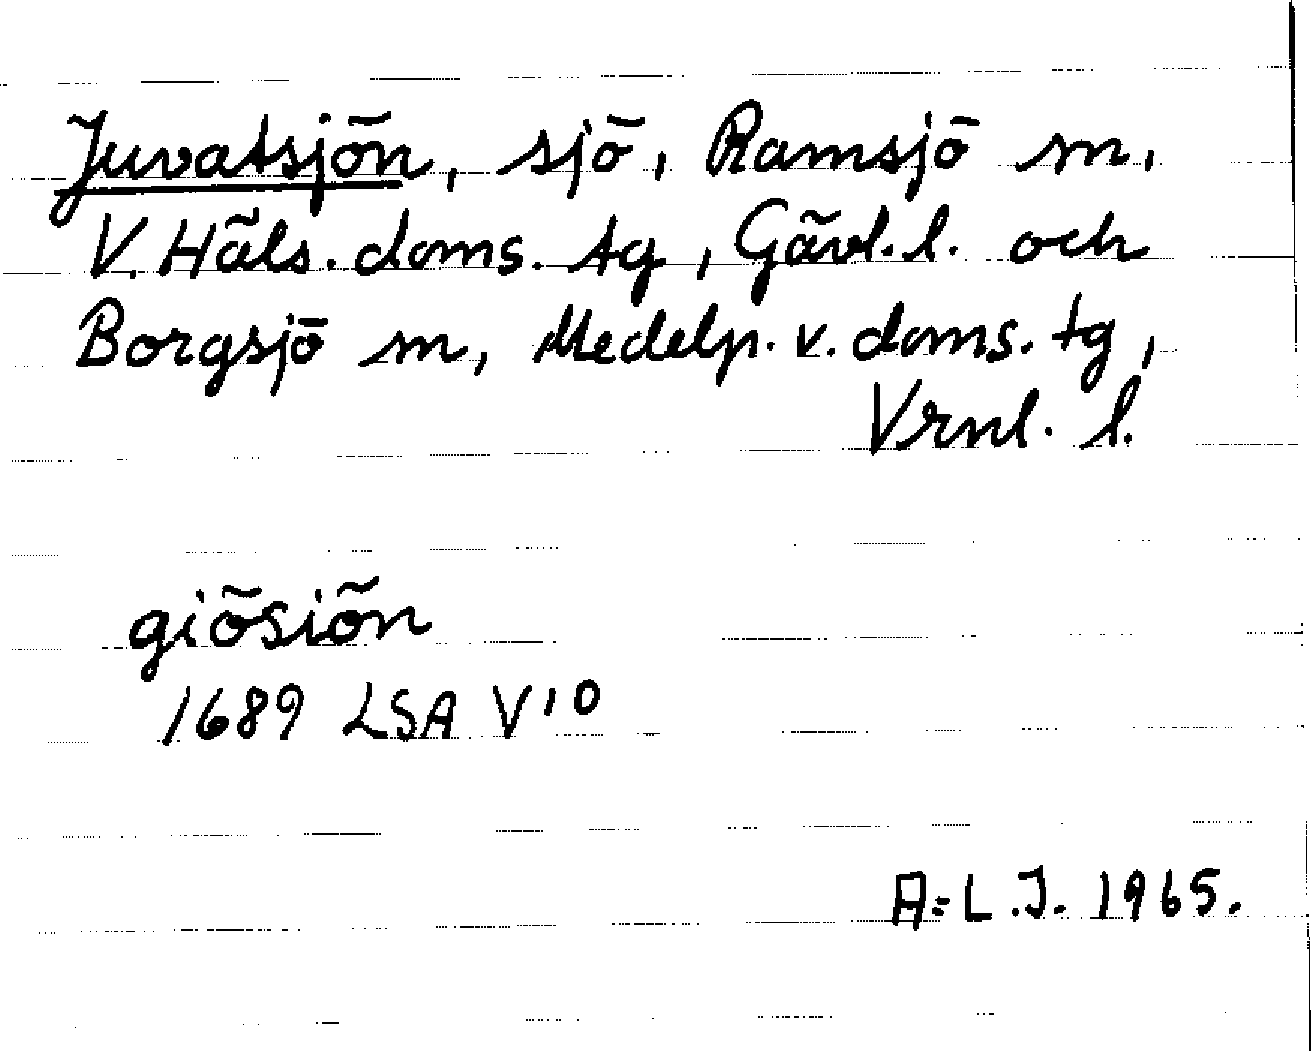 Juvatsjön, sjö, Ramsjö sn,
V. Häls. doms. tg, Gävl. l. och
Borgsjö sn, Medelp. v. doms. tg,
Vrnl. l.
giösiön
1689 LSA V10
A-L.J. 1965.